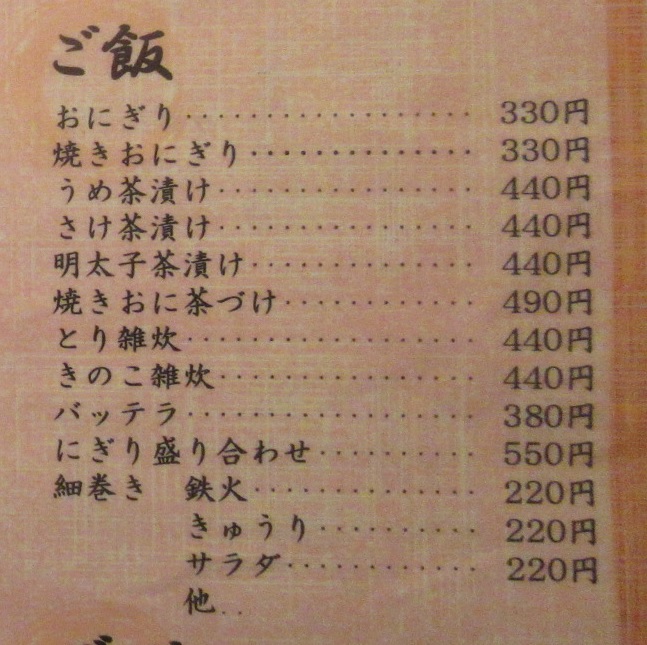 ご飯
おにぎり・・・・・・・・・・・・・・・・・・ 330円
焼きおにぎり・・・・・・・・・・・・・・ 330円
うめ茶漬け・・・・・・・・・・・・・・・・ 440円
さけ茶漬け・・・・・・・・・・・・・・・・ 440円
明太子茶漬け・・・・・・・・・・・・・・ 440円
焼きおに茶づけ・・・・・・・・・・・・ 490円
とり雑炊・・・・・・・・・・・・・・・・・・ 440円
きのこ雑炊・・・・・・・・・・・・・・・・ 440円
バッテラ・・・・・・・・・・・・・・・・・・ 380円
にぎり盛り合わせ・・・・・・・・・・ 550円
細巻き 鉄火・・・・・・・・・・・・・・ 220円
きゅうり・・・・・・・・・・ 220円
サラダ・・・・・・・・・・・・ 220円
他..